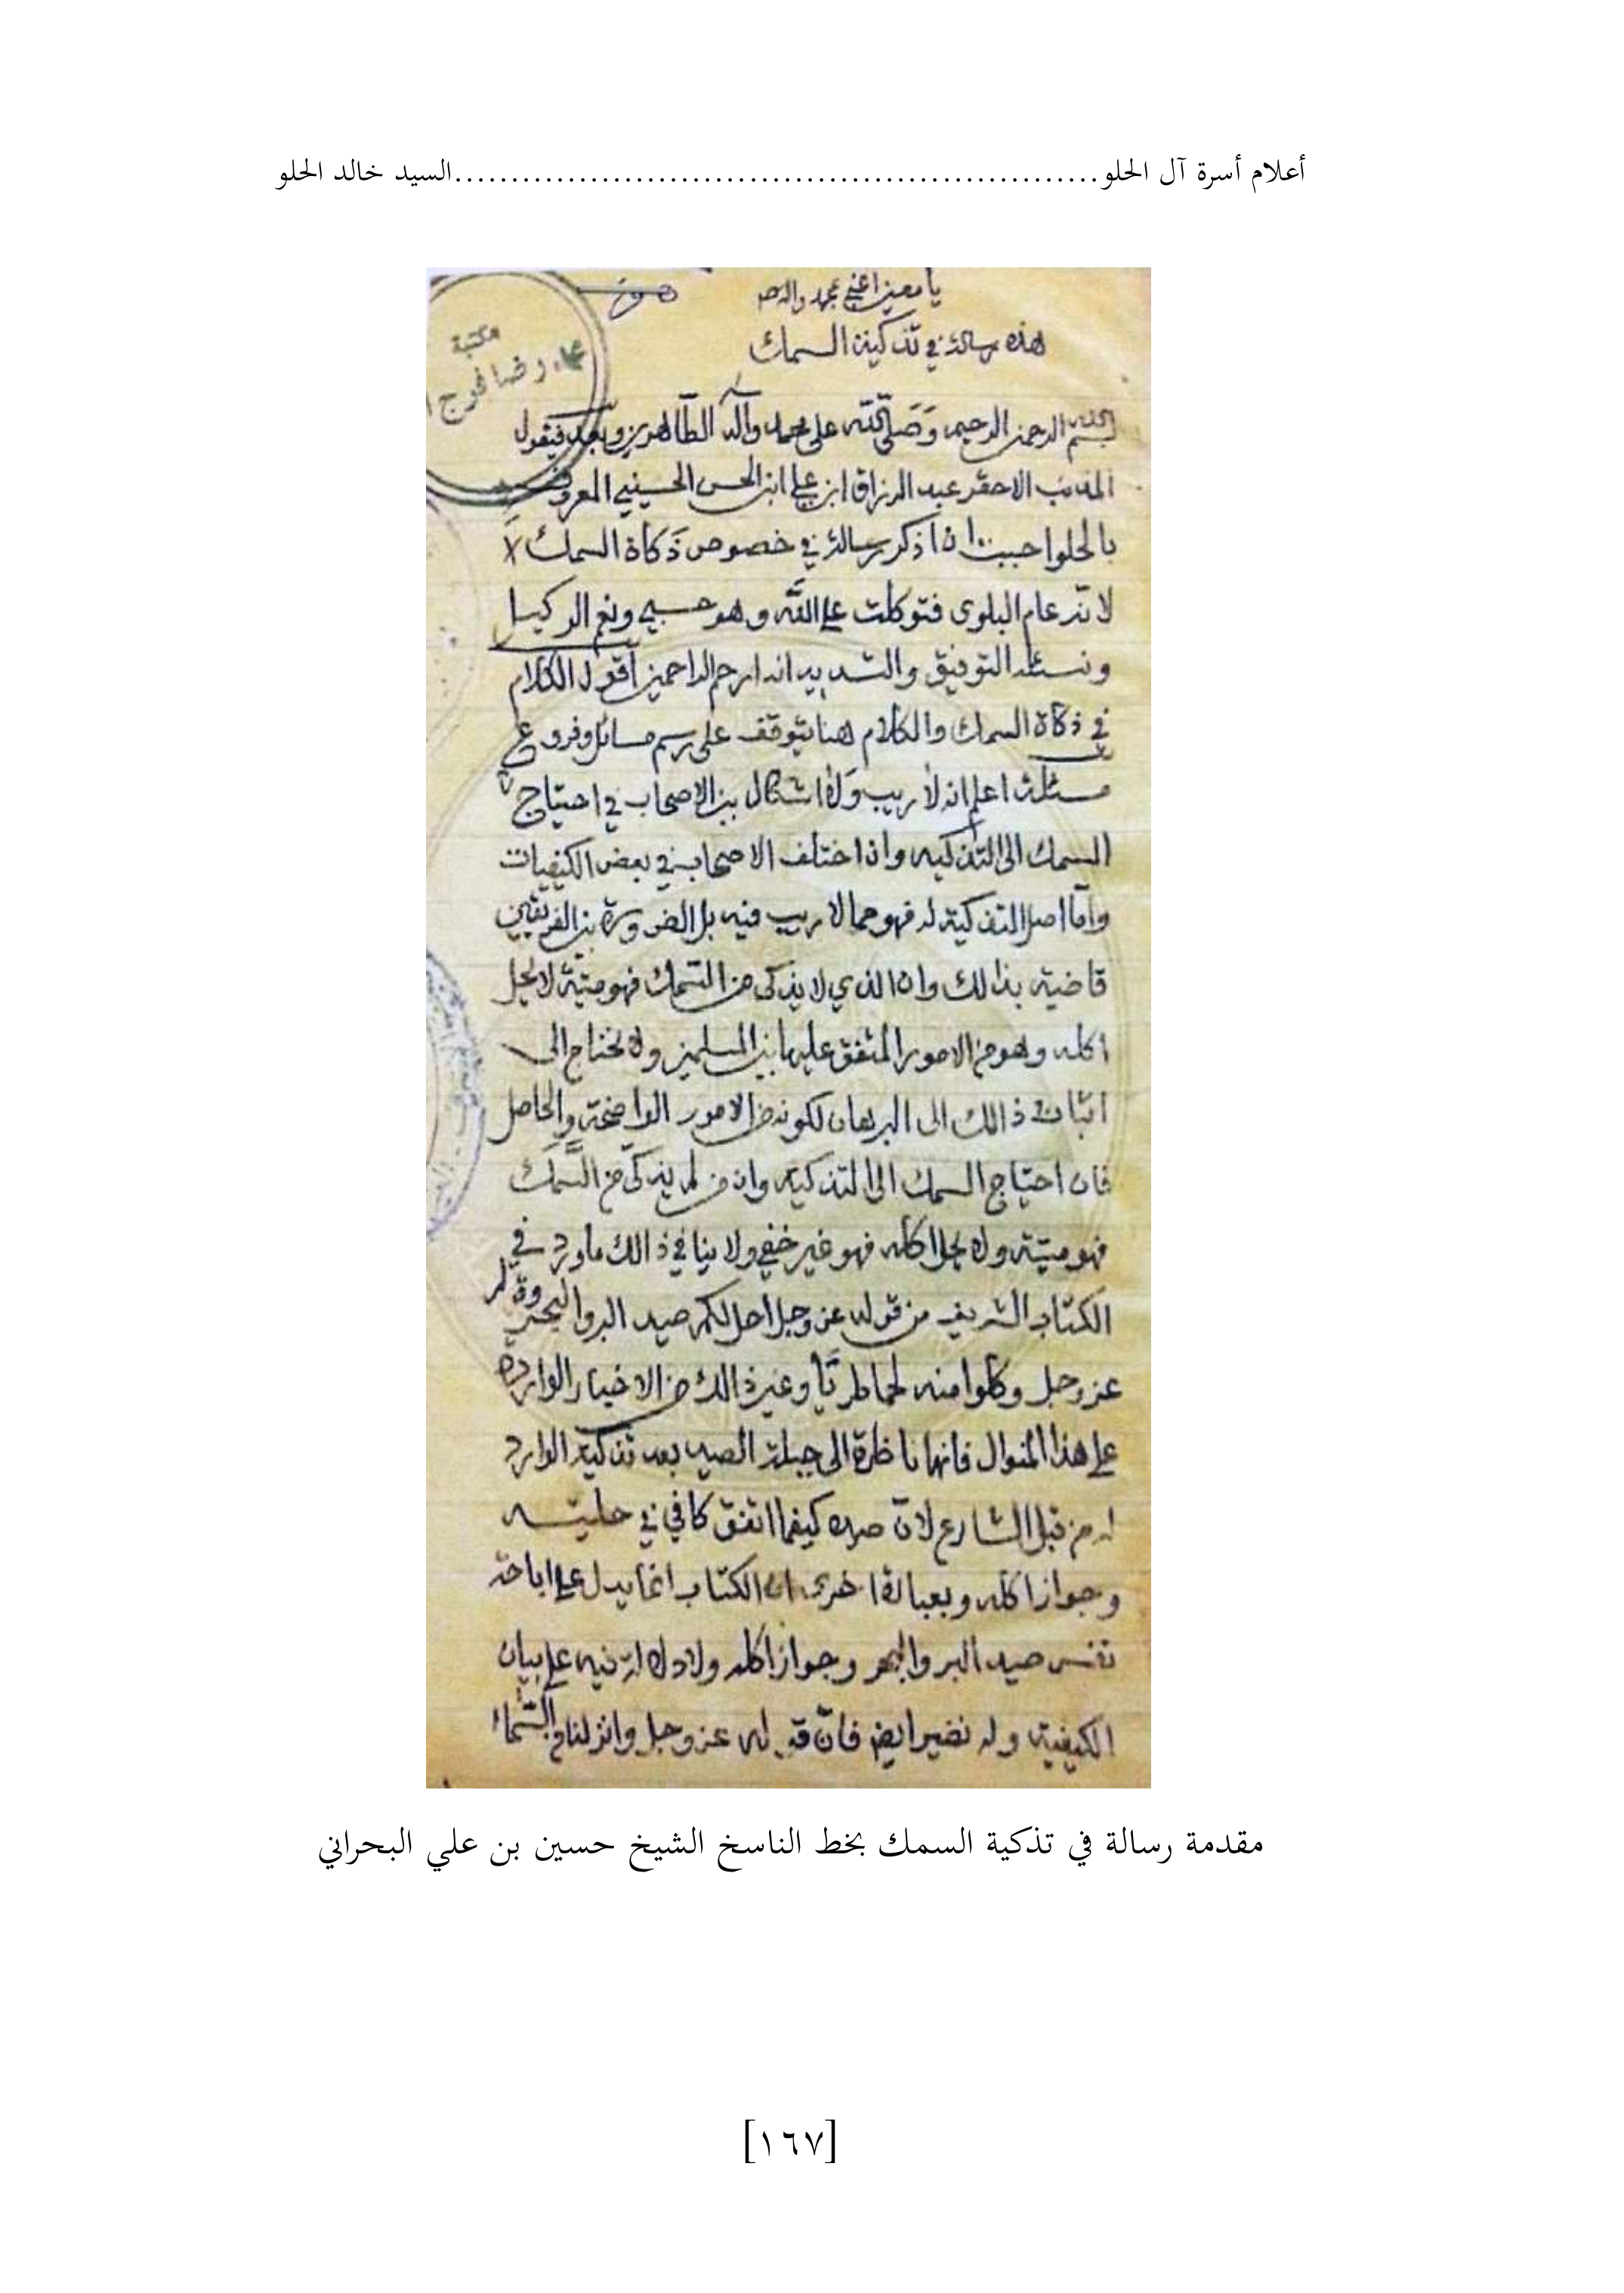 أعلام أسرة آل الحلو.........................................................السيد خالد الحلو
يا معين اغني بمحمد واله
هذه رسالة في تذكية السمك
مكتبة
رضا فرج ا
بسم الله الرحمن الرحيم وَصَلَّى الله على محمد وآله الطّاهرين وبعد فيقول
المذنب الاحقر عبد الرزاق ابن علي ابن الحسن الحسيني المعروف
بالحلو احببت ان اذكر رسالة في خصوص ذَكاة السمك لا
لانه عام البلوى فتوكلت على الله وهو حسبي ونعم الوكيل
ونسئله التوفيق والتسديد انه ارحم الراحمين أقول الكلام
في ذكاة السمك والكلام هنا يتوقف على رسم مسائل وفروع
مسئلة اعلم انه لا ريب وَلا اشكال بين الاصحاب في احتياج
السمك الى التذكيه وان اختلف الاصحاب في بعض الكيفيات
وامّا اصل التذكية له فهو مما لا ريب فيه بل الضرورة بين الفريقين
قاضية بذالك وان الذي لا يذكى من السّمك فهو ميتة لا يحل
اكله وهو من الامور المتفق عليها بين المسلمين ولا يحتاج الى
اثبات ذالك الى البرهان لكونه من الامور الواضحة والحاصل
فان احتياج السمك الى التذكيه وان من لم يذكى من السَّمَك
فهو ميتة ولا يحل اكله فهو غير خفي ولا ينافي ذالك ما ورد في
الكتاب الشريف من قوله عز وجل احل لكم صيد البر والبحر وقوله
عز وجل وكلوا منه لحما طريّا وغير ذالك من الاخبار الواردة
على هذا المنوال فانها ناظرة الى جبلة الصيد بعد تذكيته الوارد
له من قبل الشارع لانّ صيده كيفما اتفق كافي في حليته
وجواز اكله وبعبارة اخرى ان الكتاب انما يدل على اباحة
نفس صيد البر والبحر وجواز اكله ولا دلالة فيه على بيان
الكيفية وله نضير ايض فانّ قوله عز وجل وانزلنا من السّماء
مقدمة رسالة في تذكية السمك بخط الناسخ الشيخ حسين بن علي البحراني
[١٦٧]